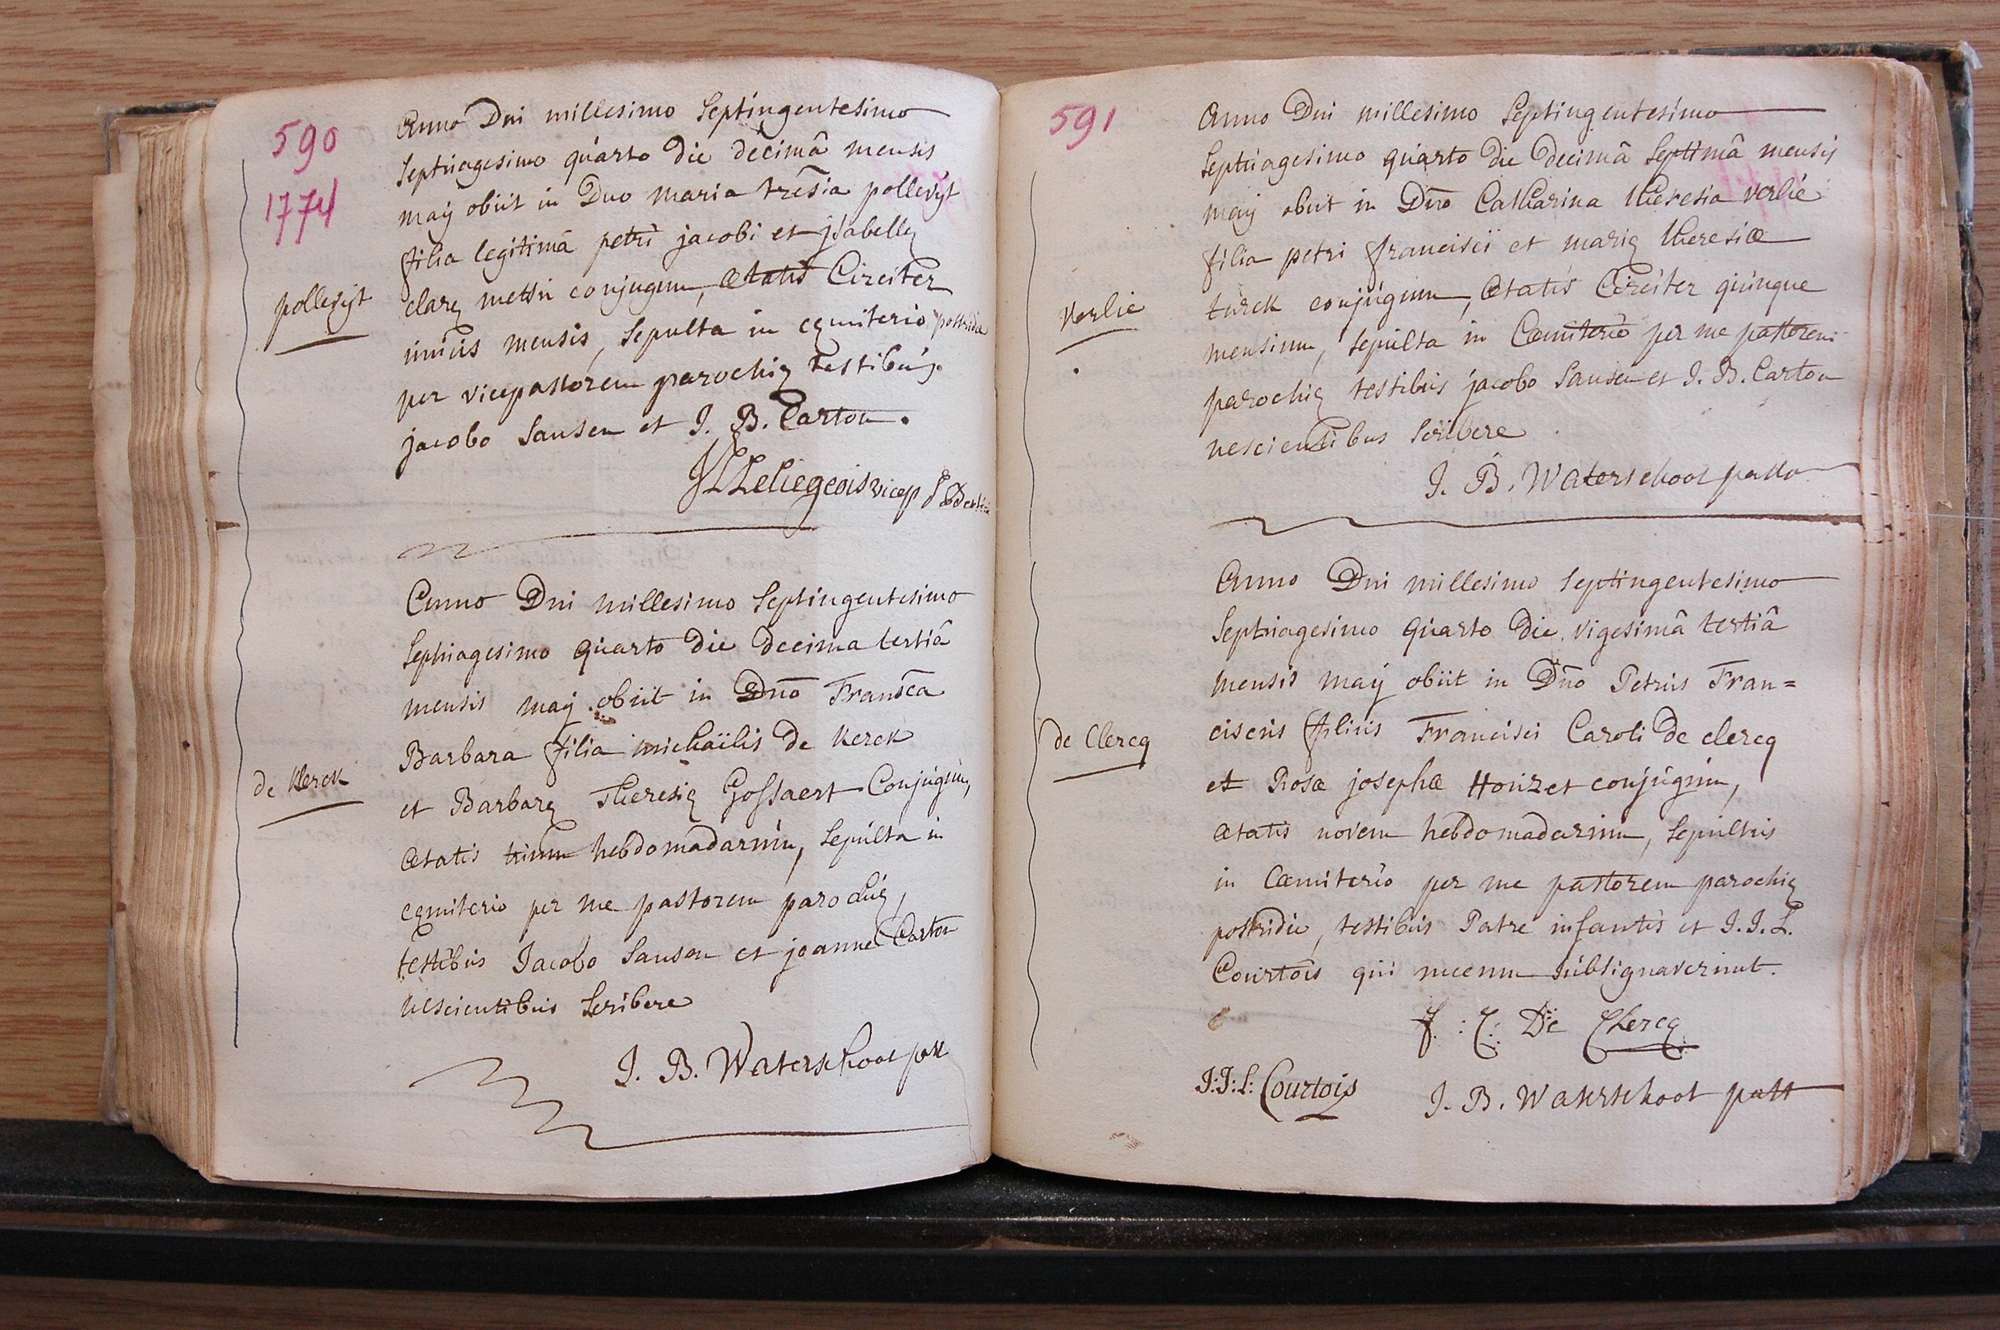 590
1774
Anno Dni millesimo Septingentesimo
Septuagesimo quarto die decimâ mensis
maÿ obiit in Dno maria tresia pollevÿt
filia legitimâ petri jacobi et jsabellę
clarę mettn conjugum, ætatis Circiter
unius mensis, Sepulta in cęmiterio postridie
per vicepastorem parochię testibus
jacobo Sansen et J. B. Carton.
Leliegeois vicep
pollevÿt
Anno Dni millesimo Septingentesimo
Septuagesimo quarto die decima tertiâ
mensis maÿ obiit in Dno Franca
Barbara filia michaïlis de Kerck
et Barbarę Theresię Gossaert Conjugum,
ætatis trium hebdomadarum, Sepulta in
cęmiterio per me pastorem parochię,
testibus Jacobo Sansen et joanne Carton
nescientibus Scribere
J. B. Waterschoot past
de Kerck
591
Anno Dni millesimo Septingentesimo
Septuagesimo quarto die decimâ Septimâ mensis
maÿ obiit in Dno Catharina theresia verlie
filia petri francisci et marię theresiæ
turck conjugum, ætatis Circiter quinque
mensium, Sepulta in Cæmiterio per me pastorem
parochię testibus jacobo Sansen et J. B. Carton
nescientibus Scribere
J. B. Waterschoot pasto
Verlie
Anno Dni millesimo Septingentesimo
Septuagesimo quarto die vigesimâ tertiâ
mensis maÿ obiit in Dno Petrus Fran=
ciscus filius Francisci Caroli De clercq
et Rosæ josephæ Houzet conjugum,
ætatis novem hebdomadarum, Sepultus
in Cæmiterio per me pastorem parochię
postridie, testibus Patre infantis et J. J. L.
Courtois qui mecum subsignaverunt.
f: C: De Clercq
J: J: L: Courtois
J. B. Waterschoot past
de Clercq